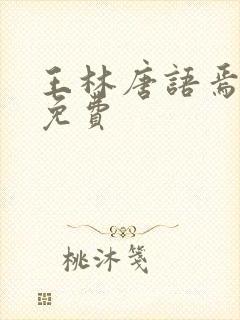 王林唐語焉
免費
桃沐箋